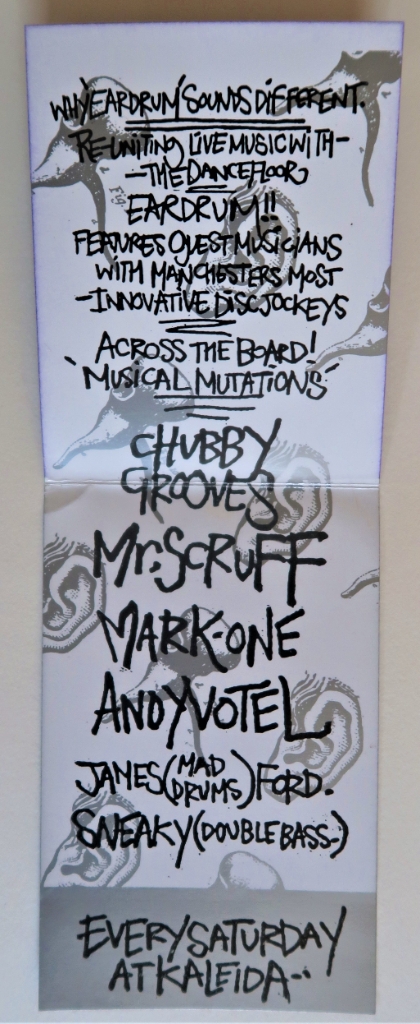 WHY 'EARDRUM' SOUNDS DIFFERENT.
RE-UNITING LIVE MUSIC WITH-
-THE DANCEFLOOR
EARDRUM!!
FEATURES QUEST MUSICIANS
WITH MANCHESTERS MOST
-INNOVATIVE DISCJOCKEYS
ACROSS THE BOARD!
'MUSICAL MUTATIONS'
CHUBBY
GROOVES
Mr. SCRUFF
MARK-ONE
ANDY VOTEL
JAMES (MAD DRUMS) FORD.
SNEAKY (DOUBLE BASS-)
EVERY SATURDAY
AT KALEIDA--
Fig.